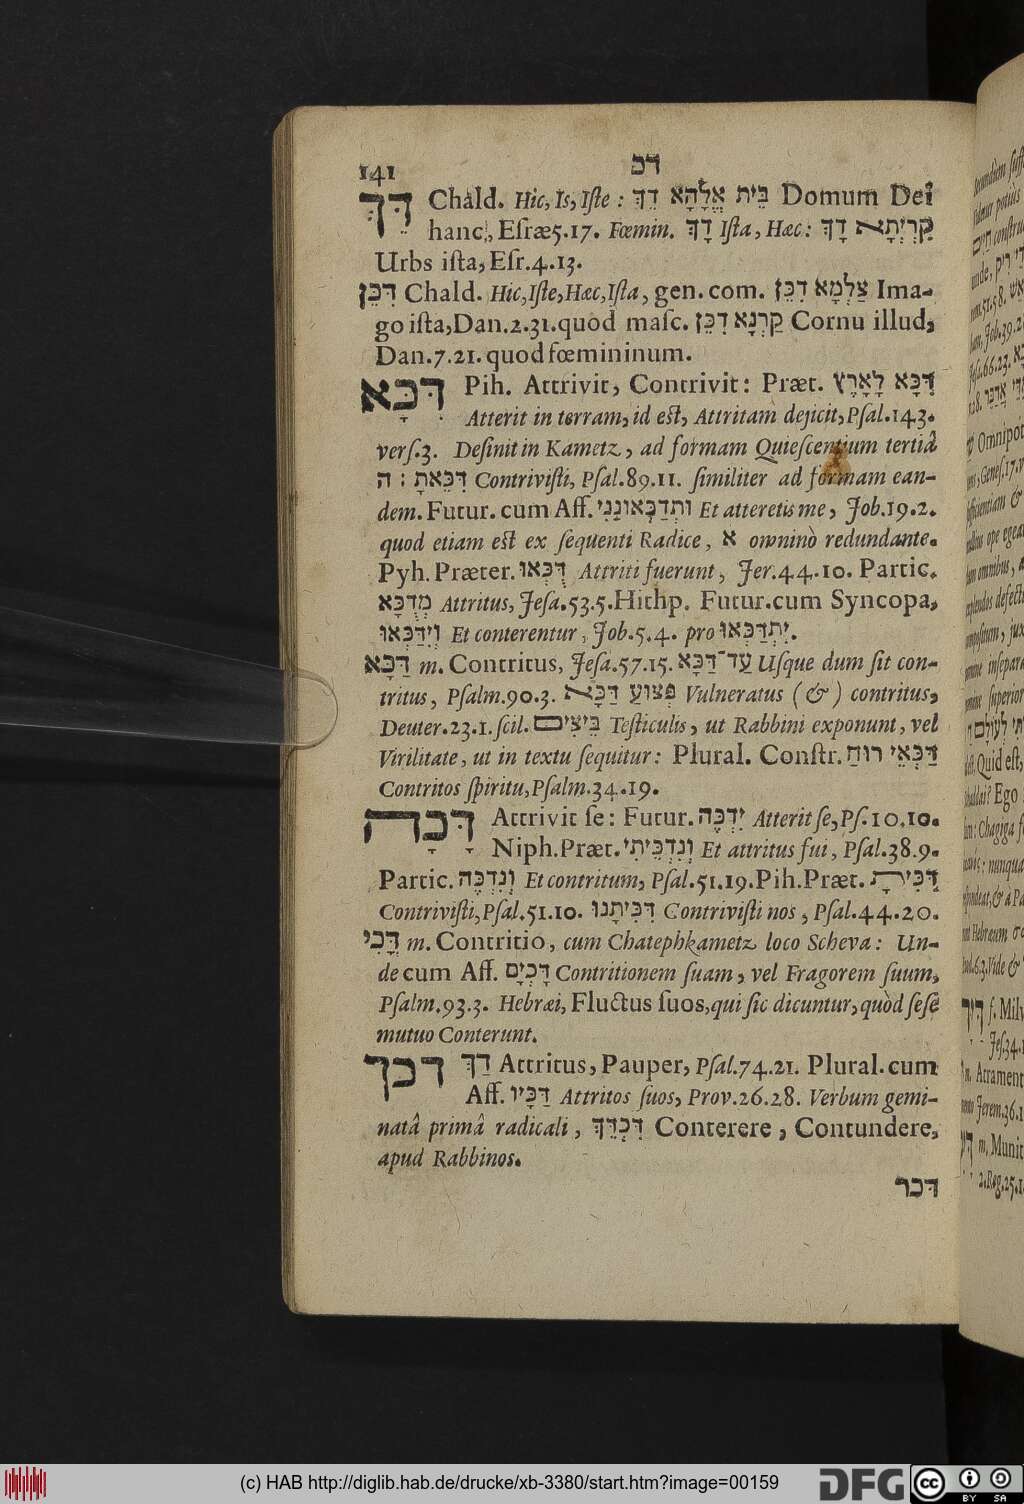 141 דכ
דֵּךְ Chald. Hic, Is, Iſte : בֵּית אֱלָהָא דֵךְ Domum Dei
hanc, Eſræ 5.17. Fœmin. דָךְ Iſta, Hæc: קִרְיְתָא דָךְ
Urbs iſta, Eſr.4.13.
דִּכֵּן Chald. Hic, Iſte, Hæc, Iſta, gen. com. צַלְמָא דִכֵּן Ima-
go iſta, Dan.2.31. quod maſc. קַרְנָא דִכֵּן Cornu illud,
Dan.7.21. quod fœmininum.
דִּכָּא Pih. Attrivit, Contrivit: Præt. דִּכָּא לָאָרֶץ
Atterit in terram, id eſt, Attritam dejicit, Pſal.143.
verſ.3. Deſinit in Kametz, ad formam Quieſcentium tertiâ
ה : דִּכֵּאתָ Contriviſti, Pſal.89.11. ſimiliter ad formam ean-
dem. Futur. cum Aff. וּתְדַכְּאוּנַנִי Et atteretis me, Job.19.2.
quod etiam eſt ex ſequenti Radice, א omninò redundante.
Pyh. Præter. דֻּכְּאוּ Attriti fuerunt, Jer.44.10. Partic.
מְדֻכָּא Attritus, Jeſa.53.5. Hithp. Futur. cum Syncopa,
וְיִדַּכְּאוּ Et conterentur, Job.5.4. pro יִתְדַּכְּאוּ.
דַּכָּא m. Contritus, Jeſa.57.15. עַד־דַּכָּא Uſque dum ſit con-
tritus, Pſalm.90.3. פְּצוּעַ דַּכָּא Vulneratus (&) contritus,
Deuter.23.1. ſcil. בֵּיצִים Teſticulis, ut Rabbini exponunt, vel
Virilitate, ut in textu ſequitur: Plural. Conſtr. דַּכְּאֵי רוּחַ
Contritos ſpiritu, Pſalm.34.19.
דָּכָה Attrivit ſe: Futur. יִדְכֶּה Atterit ſe, Pſ.10.10.
Niph. Præt. וְנִדְכֵּיתִי Et attritus fui, Pſal.38.9.
Partic. וְנִדְכֶּה Et contritum, Pſal.51.19. Pih. Præt. דִּכִּיתָ
Contriviſti, Pſal.51.10. דִּכִּיתָנוּ Contriviſti nos, Pſal.44.20.
דֳּכִי m. Contritio, cum Chatephkametz loco Scheva: Un-
de cum Aff. דָּכְיָם Contritionem ſuam, vel Fragorem ſuum,
Pſalm.93.3. Hebræi, Fluctus ſuos, qui ſic dicuntur, quòd ſeſe
mutuo Conterunt.
דכך דַךְ Attritus, Pauper, Pſal.74.21. Plural. cum
Aff. דַּכָּיו Attritos ſuos, Prov.26.28. Verbum gemi-
natâ primâ radicali, דִּכְדֵּךְ Conterere, Contundere,
apud Rabbinos.
דכר
(c) HAB http://diglib.hab.de/drucke/xb-3380/start.htm?image=00159
DFG cc BY SA